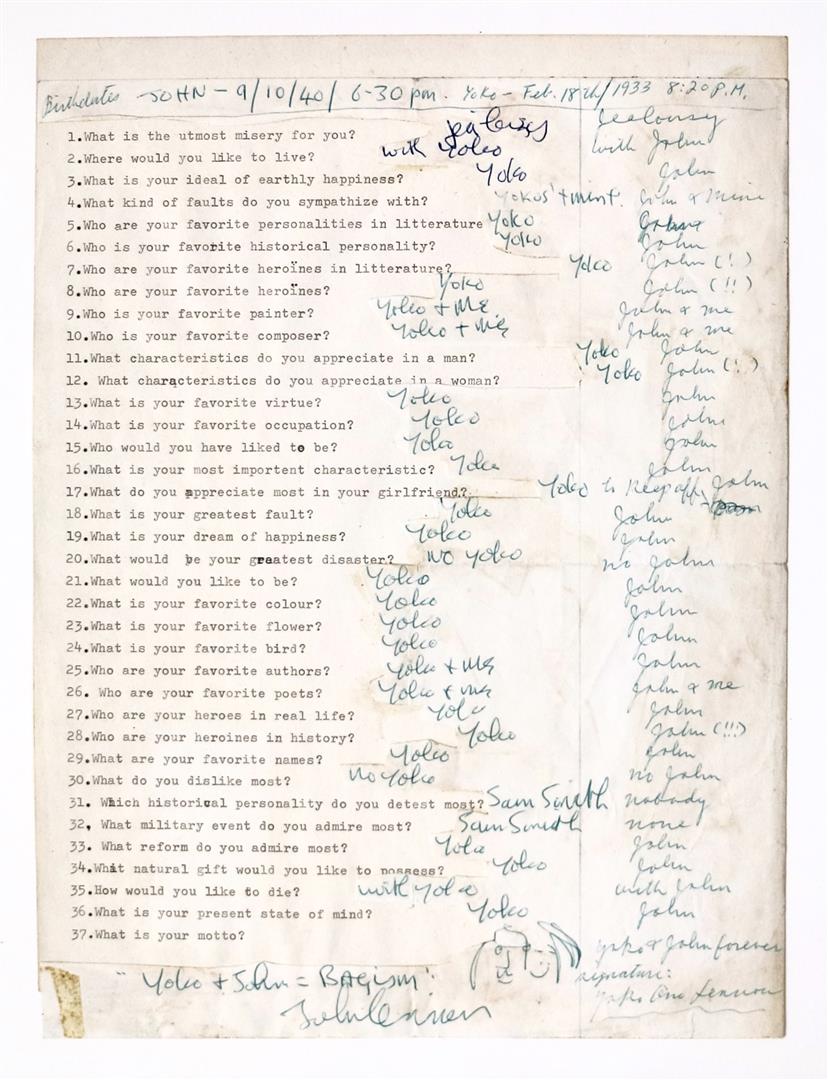 Birthdates - JOHN - 9/10/40/ 6-30 pm. Yoko - Feb. 18th/1933 8:20 P.M.
1.What is the utmost misery for you? jealousy Jealousy
2.Where would you like to live? with Yoko with John
3.What is your ideal of earthly happiness? Yoko John
4.What kind of faults do you sympathize with? Yokos' + mine. John & Mine
5.Who are your favorite personalities in litterature Yoko John
6.Who is your favorite historical personality? Yoko John
7.Who are your favorite heroïnes in litterature? Yoko John (!)
8.Who are your favorite heroïnes? Yoko John (!!)
9.Who is your favorite painter? Yoko + ME. John & me
10.Who is your favorite composer? Yoko + ME John & me
11.What characteristics do you appreciate in a man? Yoko John
12. What characteristics do you appreciate in a woman? Yoko John (!)
13.What is your favorite virtue? Yoko John
14.What is your favorite occupation? Yoko John
15.Who would you have liked to be? Yoko John
16.What is your most importent characteristic? Yoko John
17.What do you appreciate most in your girlfriend? Yoko to keep off John
18.What is your greatest fault? Yoko John
19.What is your dream of happiness? Yoko John
20.What would be your greatest disaster? NO YOKO no John
21.What would you like to be? Yoko John
22.What is your favorite colour? Yoko John
23.What is your favorite flower? Yoko John
24.What is your favorite bird? Yoko John
25.Who are your favorite authors? Yoko + ME John
26. Who are your favorite poets? Yoko + me John & me
27.Who are your heroes in real life? Yoko John
28.Who are your heroines in history? Yoko John (!!!)
29.What are your favorite names? Yoko John
30.What do you dislike most? no Yoko no John
31. Which historical personality do you detest most? Sam Smith nobody
32, What military event do you admire most? Sam Smith none
33. What reform do you admire most? Yoko John
34.What natural gift would you like to possess? Yoko John
35.How would you like to die? with Yoko with John
36.What is your present state of mind? Yoko John
37.What is your motto? Yoko & John forever
"Yoko + John = BAGISM". signature:
John Lennon Yoko Ono Lennon